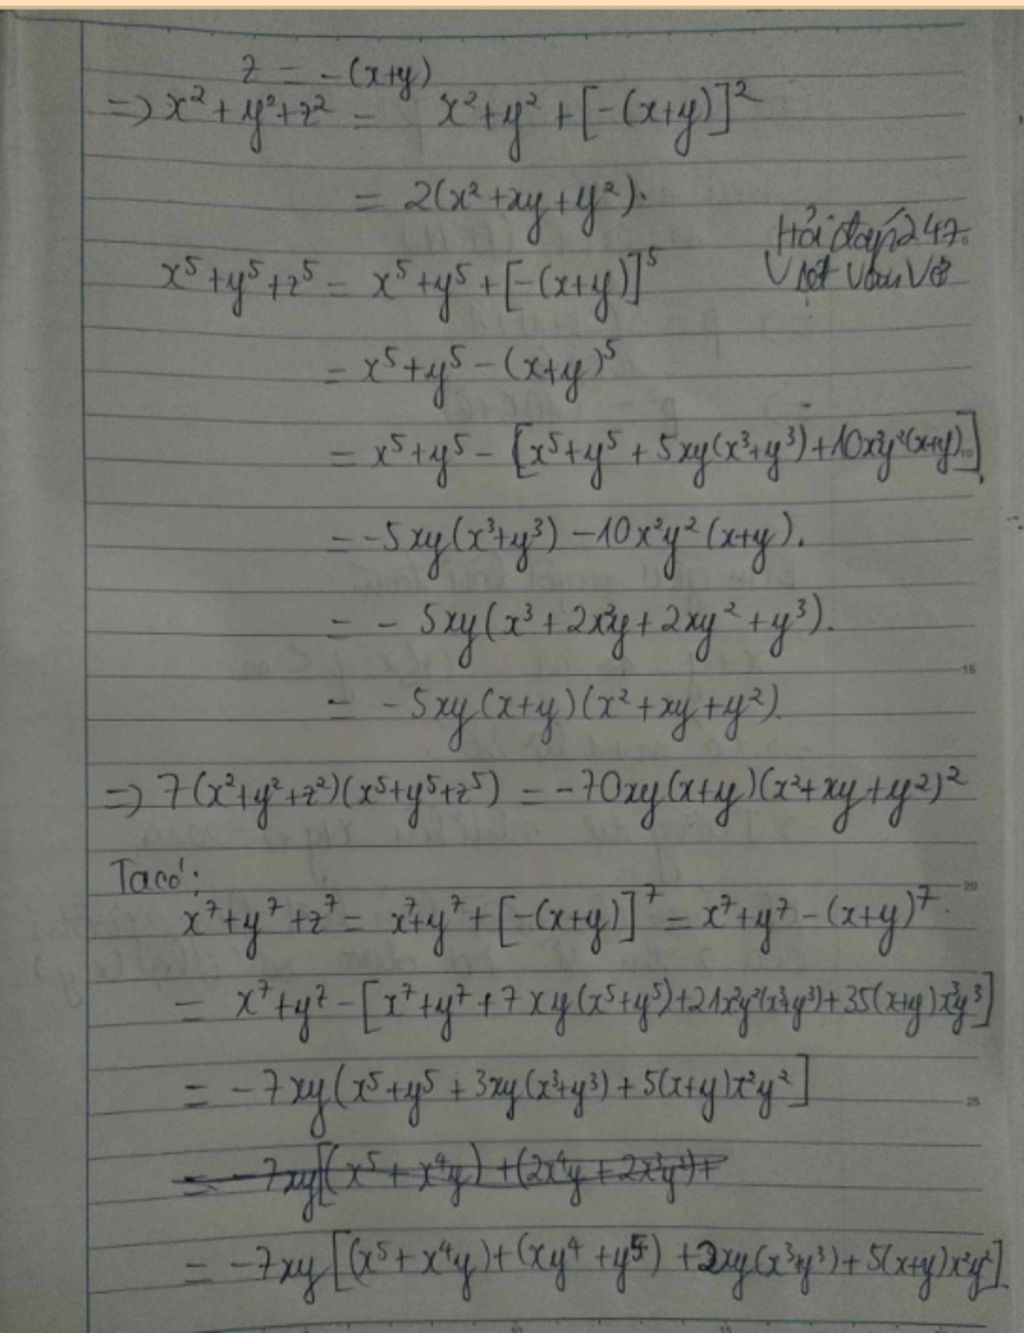 z = -(x+y)
=> x² + y² + z² = x² + y² + [-(x+y)]²
= 2(x² + xy + y²).
Hỏi đáp 247.
x⁵ + y⁵ + z⁵ = x⁵ + y⁵ + [-(x+y)]⁵
= x⁵ + y⁵ - (x+y)⁵
= x⁵ + y⁵ - [x⁵ + y⁵ + 5xy(x³+y³) + 10x²y²(x+y)]
= -5xy(x³+y³) - 10x²y²(x+y).
= - 5xy(x³ + 2x²y + 2xy² + y³).
= -5xy(x+y)(x² + xy + y²)
=> 7(x²+y²+z²)(x⁵+y⁵+z⁵) = -70xy(x+y)(x²+xy+y²)²
Ta có:
x⁷ + y⁷ + z⁷ = x⁷+y⁷ + [-(x+y)]⁷ = x⁷+y⁷ - (x+y)⁷.
= x⁷+y⁷ - [x⁷+y⁷ + 7xy(x⁵+y⁵) + 21x²y²(x³+y³) + 35(x+y)x³y³]
= -7xy(x⁵+y⁵ + 3xy(x³+y³) + 5(x+y)x²y²]
= -7xy[(x⁵ + x⁴y) + (2x⁴y + 2x³y²) +
= -7xy[(x⁵ + x⁴y) + (xy⁴ + y⁵) + 2xy(x³+y³) + 5(x+y)x²y²]